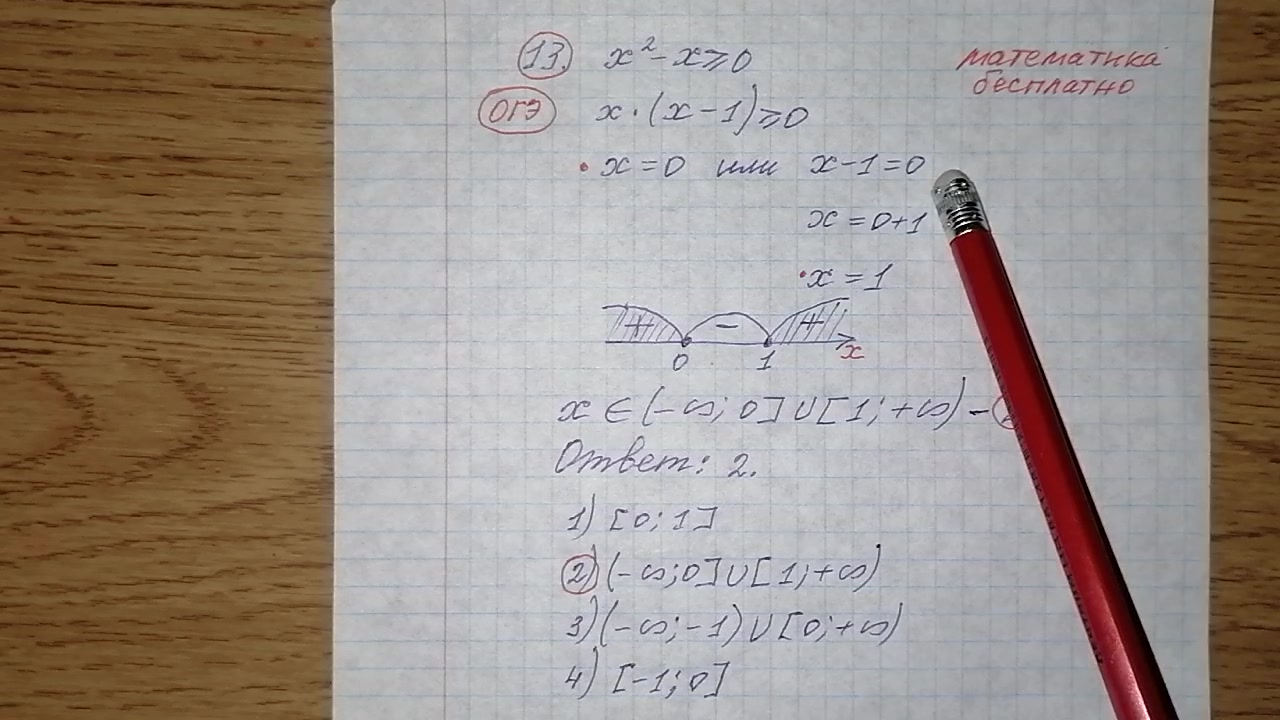 13. x² - x ⩾ 0
математика
бесплатно
ОГЭ x · (x - 1) ⩾ 0
x = 0 или x - 1 = 0
x = 0 + 1
x = 1
+ - +
0 1 x
x ∈ (-∞; 0] ∪ [1; +∞) -
Ответ: 2.
1) [0; 1]
2) (-∞; 0] ∪ [1; +∞)
3) (-∞; -1) ∪ [0; +∞)
4) [-1; 0]